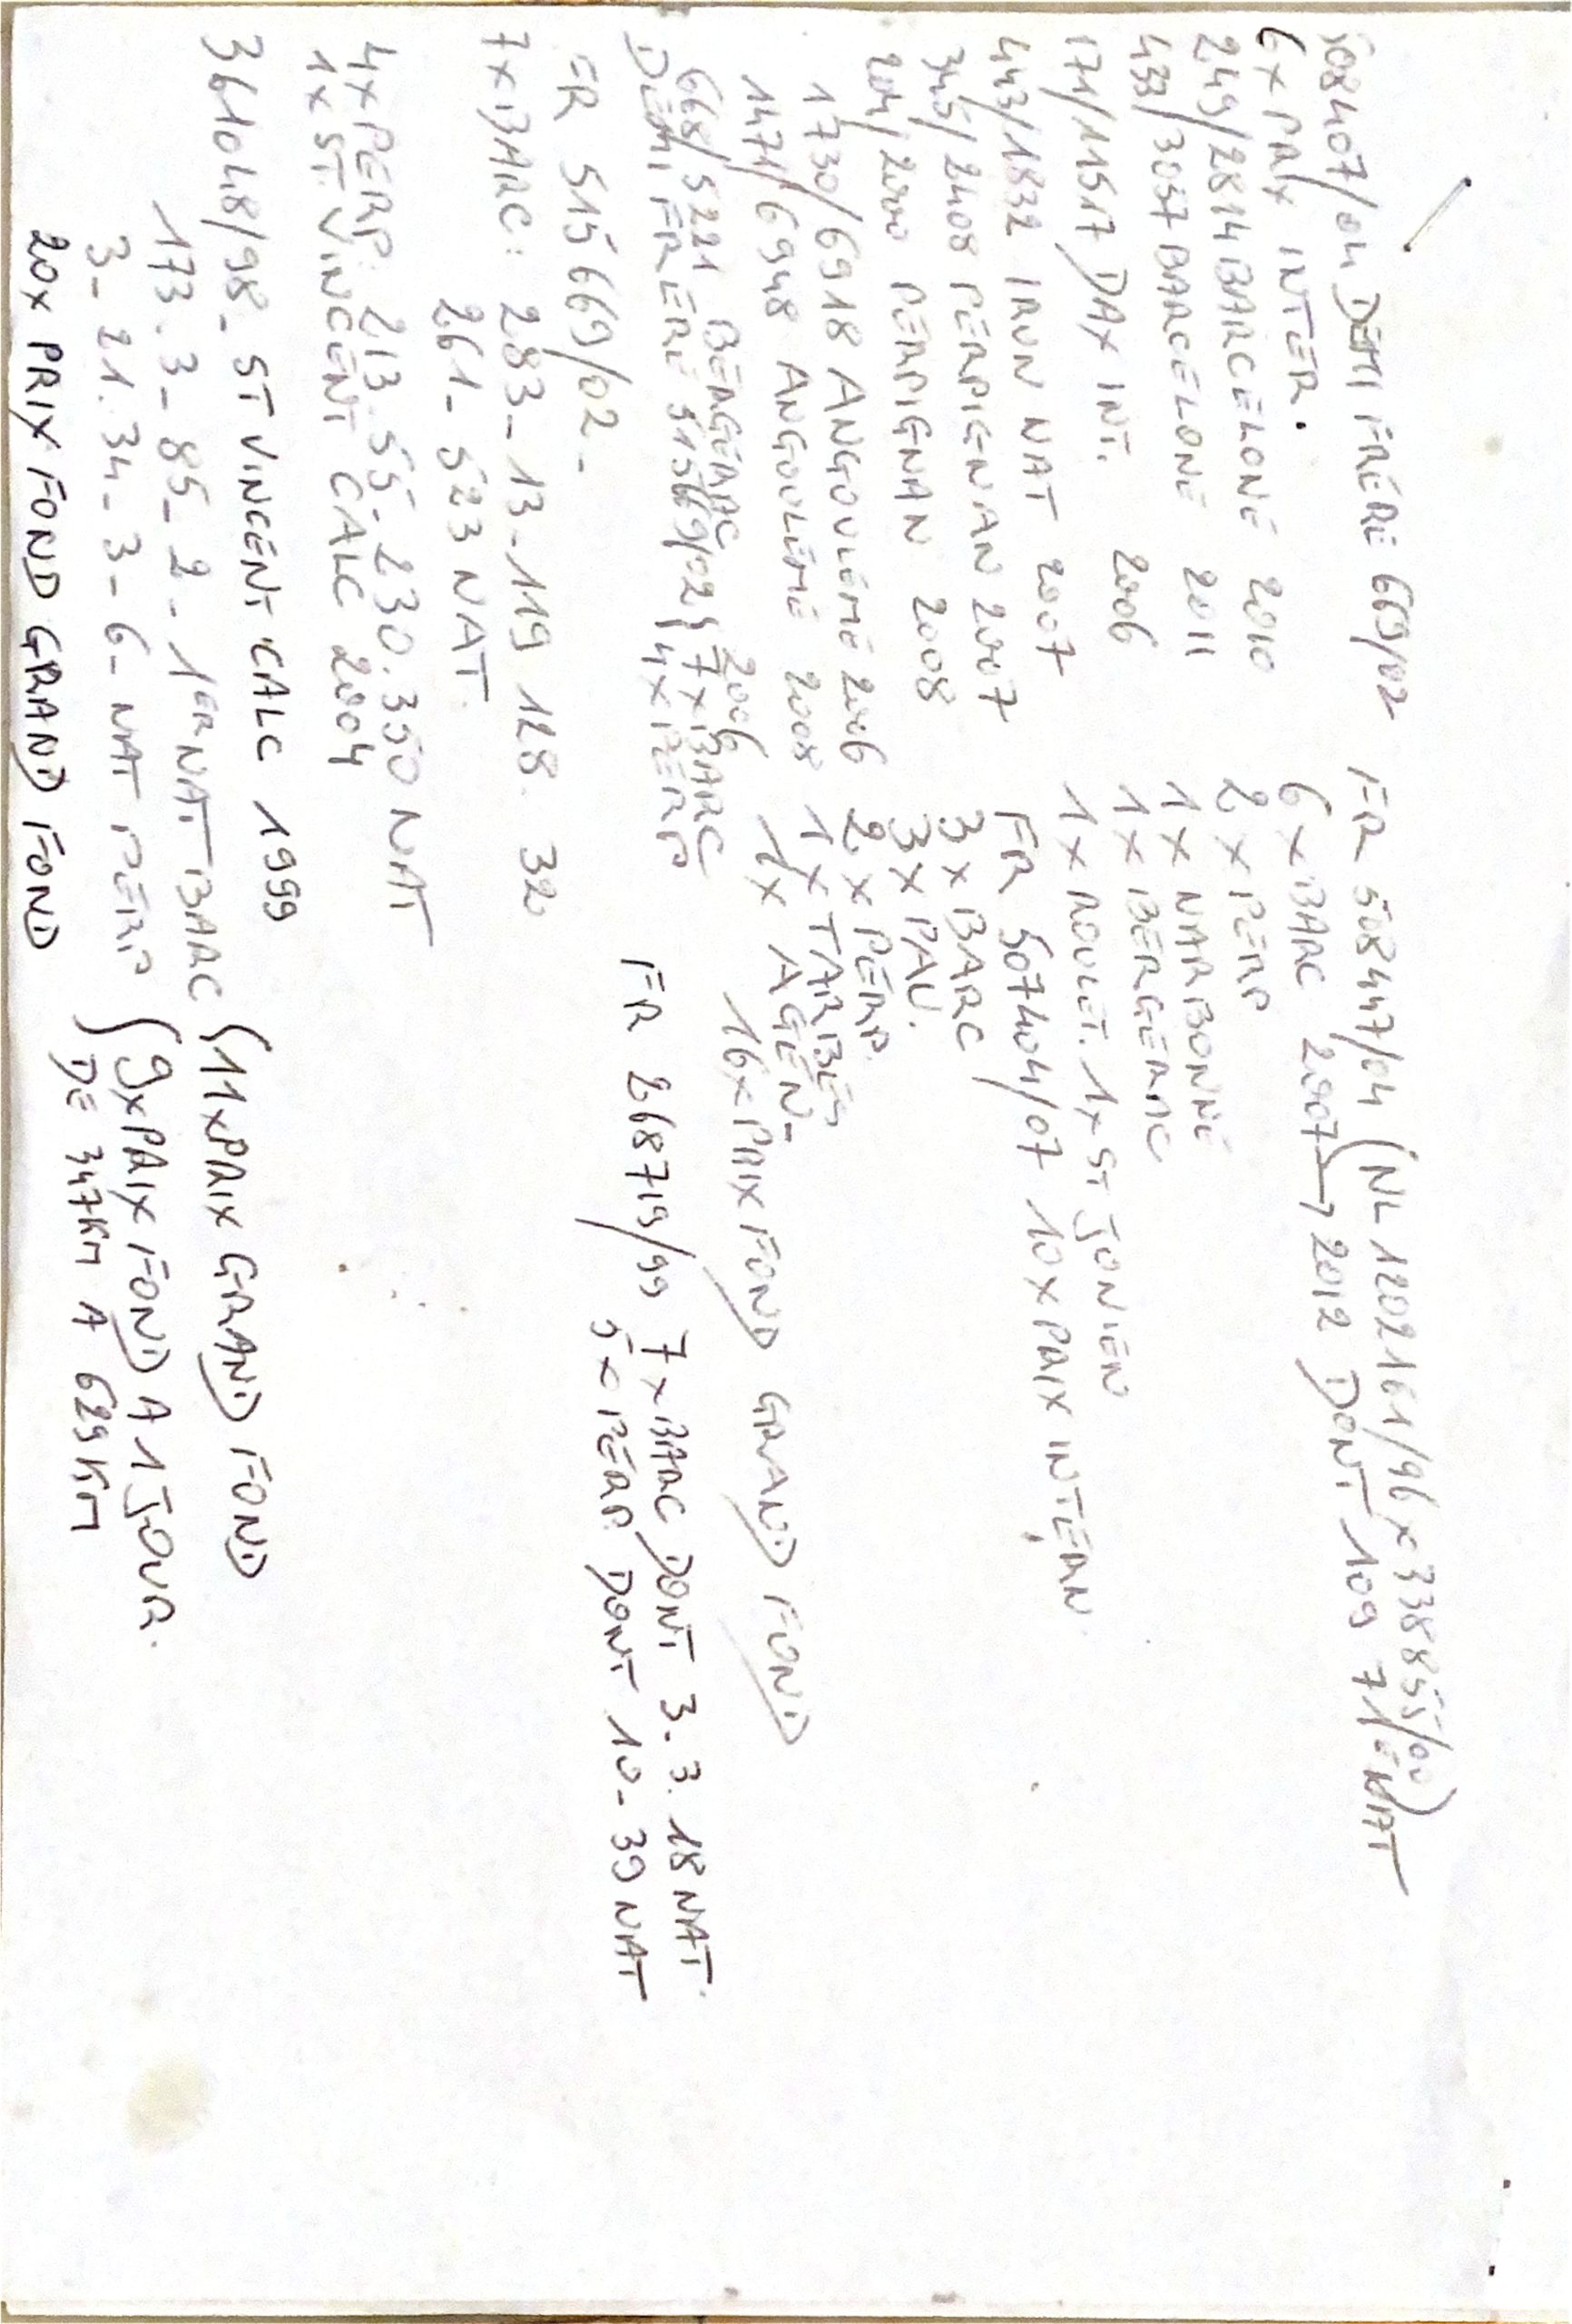 508407/04 DEMI FRÈRE 669/02
6 x PRIX INTER.
249/2814 BARCELONE 2010
433/3057 BARCELONE 2011
171/11517 DAX INT. 2006
443/1832 IRUN NAT 2007
345/2408 PERPIGNAN 2007
204/2200 PERPIGNAN 2008
1730/6918 ANGOULÉME 2006
1471/6948 ANGOULÉME 2008
668/5221 BERGERAC 2006
DEMI FRERE 515669/02 { 7 x BARC
4 x PERP
FR 515669/02 -
7 x BARC: 283 - 13 - 119 128. 320
261 - 523 NAT.
4 x PERP: 213. 55 - 230. 350 NAT
1 x ST. VINCENT CALC 2004
361048/98 - ST VINCENT CALC 1999
173. 3 - 85 - 2 - 1ER NAT BARC
3 - 21. 34 - 3 - 6 - NAT PERP
20 x PRIX FOND GRAND FOND
FR 508447/04 (NL 1202161/96 x 338855/00)
6 x BARC 2007 → 2012 DONT 109 71E NAT
2 x PERP
1 x NARBONNE
1 x BERGERAC
1 x ROULET. 1 x ST JUNIEN
FR 507404/07 10 x PRIX INTERN
3 x BARC
3 x PAU.
2 x PERP.
1 x TARBES
1 x AGEN -
16 x PRIX FOND GRAND FOND
FR 268719/99 7 x BARC DONT 3. 3. 18 NAT.
5 x PERP. DONT 10 - 39 NAT
{ 11 x PRIX GRAND FOND
{ 9 x PRIX FOND A 1 JOUR.
DE 347 KM A 629 KM